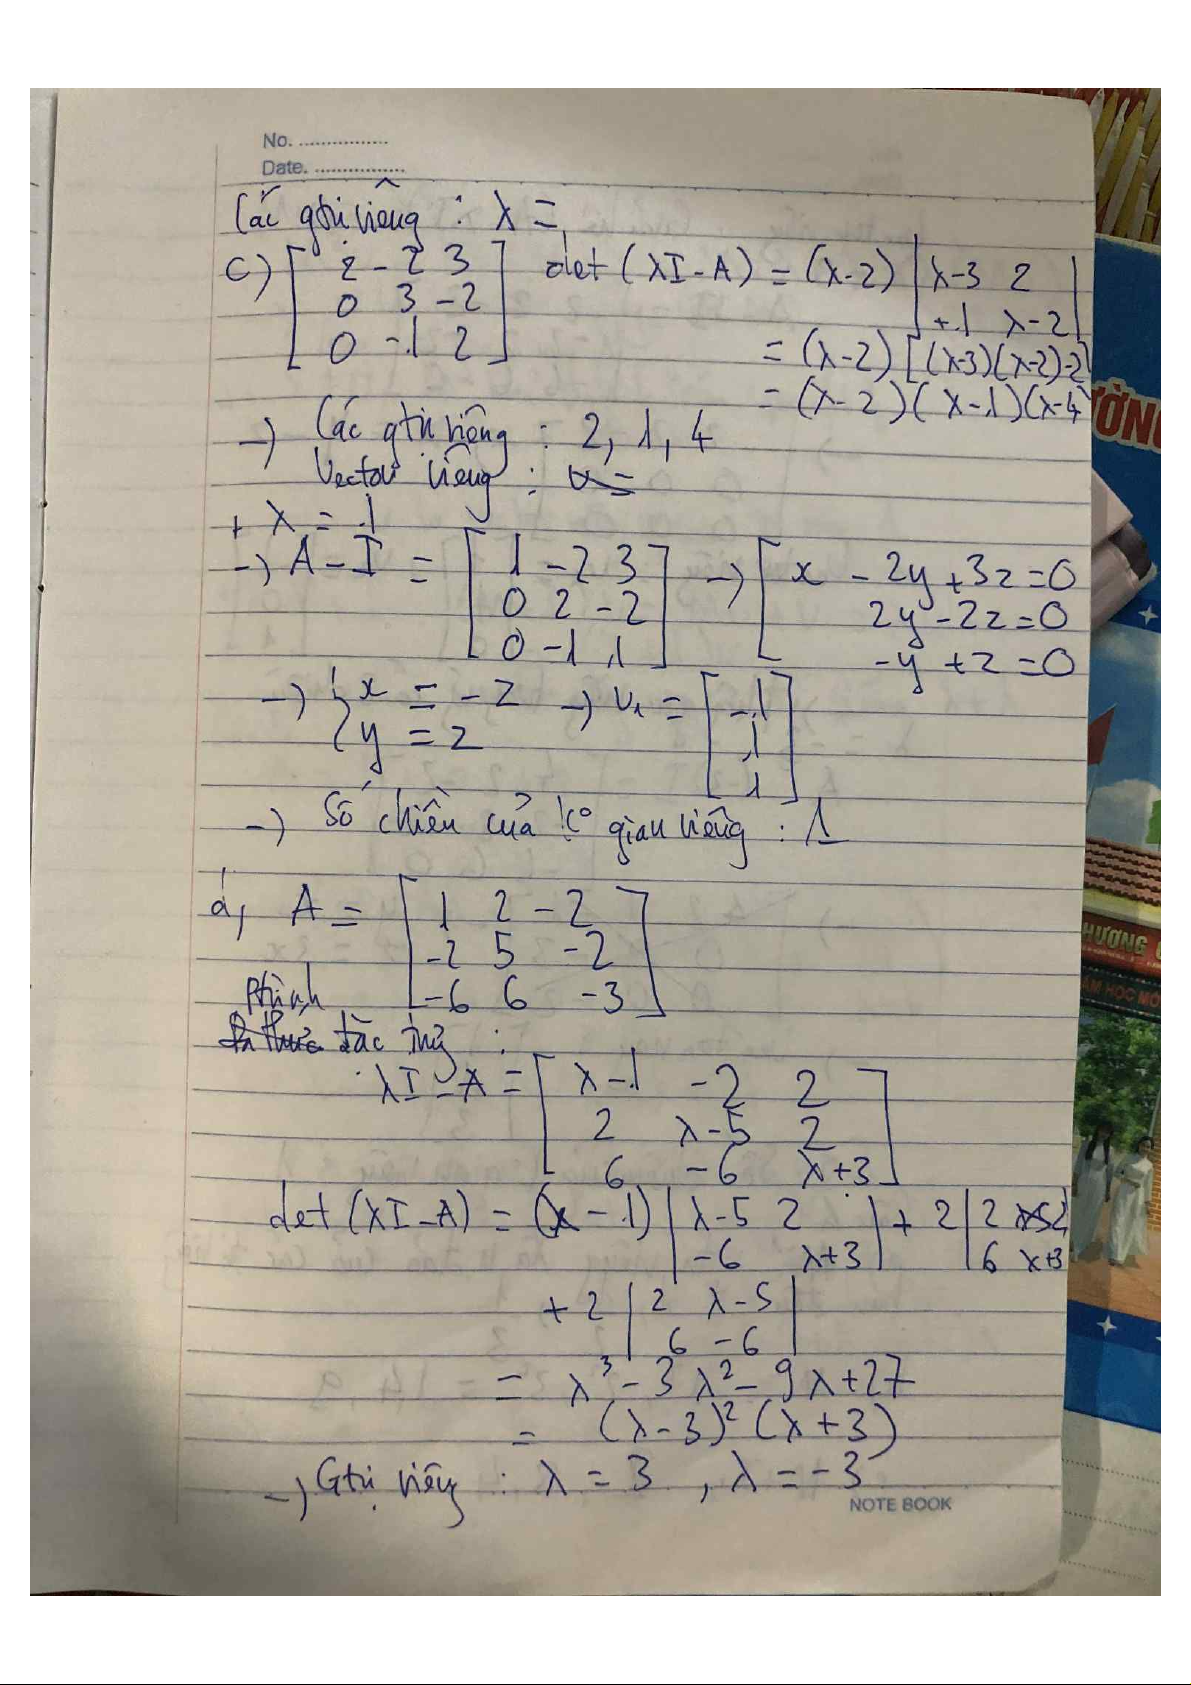 No. ................
Date. ................
Các gtrị riêng : λ =
c) [2 -2 3; 0 3 -2; 0 -1 2] det (λI - A) = (λ-2) |λ-3 2; +1 λ-2|
= (λ-2) [(λ-3)(λ-2)-2]
= (λ-2)(λ-1)(λ-4)
-) Các gtrị riêng : 2, 1, 4
Vector riêng : v =
+ λ = 1
-) A - I = [1 -2 3; 0 2 -2; 0 -1 1] -) [x - 2y + 3z = 0
2y - 2z = 0
-y + z = 0
-) { x = -z -) v₁ = [-1; 1; 1]
y = z
-) Số chiều của k° gian riêng : 1
d, A = [1 2 -2; -2 5 -2; -6 6 -3]
Ptrình
đa thức đặc trưng :
λI - A = [λ-1 -2 2; 2 λ-5 2; 6 -6 λ+3]
det (λI - A) = (λ - 1) |λ-5 2; -6 λ+3| + 2 |2 2; 6 λ+3|
+ 2 |2 λ-5; 6 -6|
= λ³ - 3λ² - 9λ + 27
= (λ-3)² (λ+3)
-) Gtrị riêng : λ = 3 , λ = -3
NOTE BOOK
ƯỜNG
HƯƠNG
ẦM HỌC MÔ